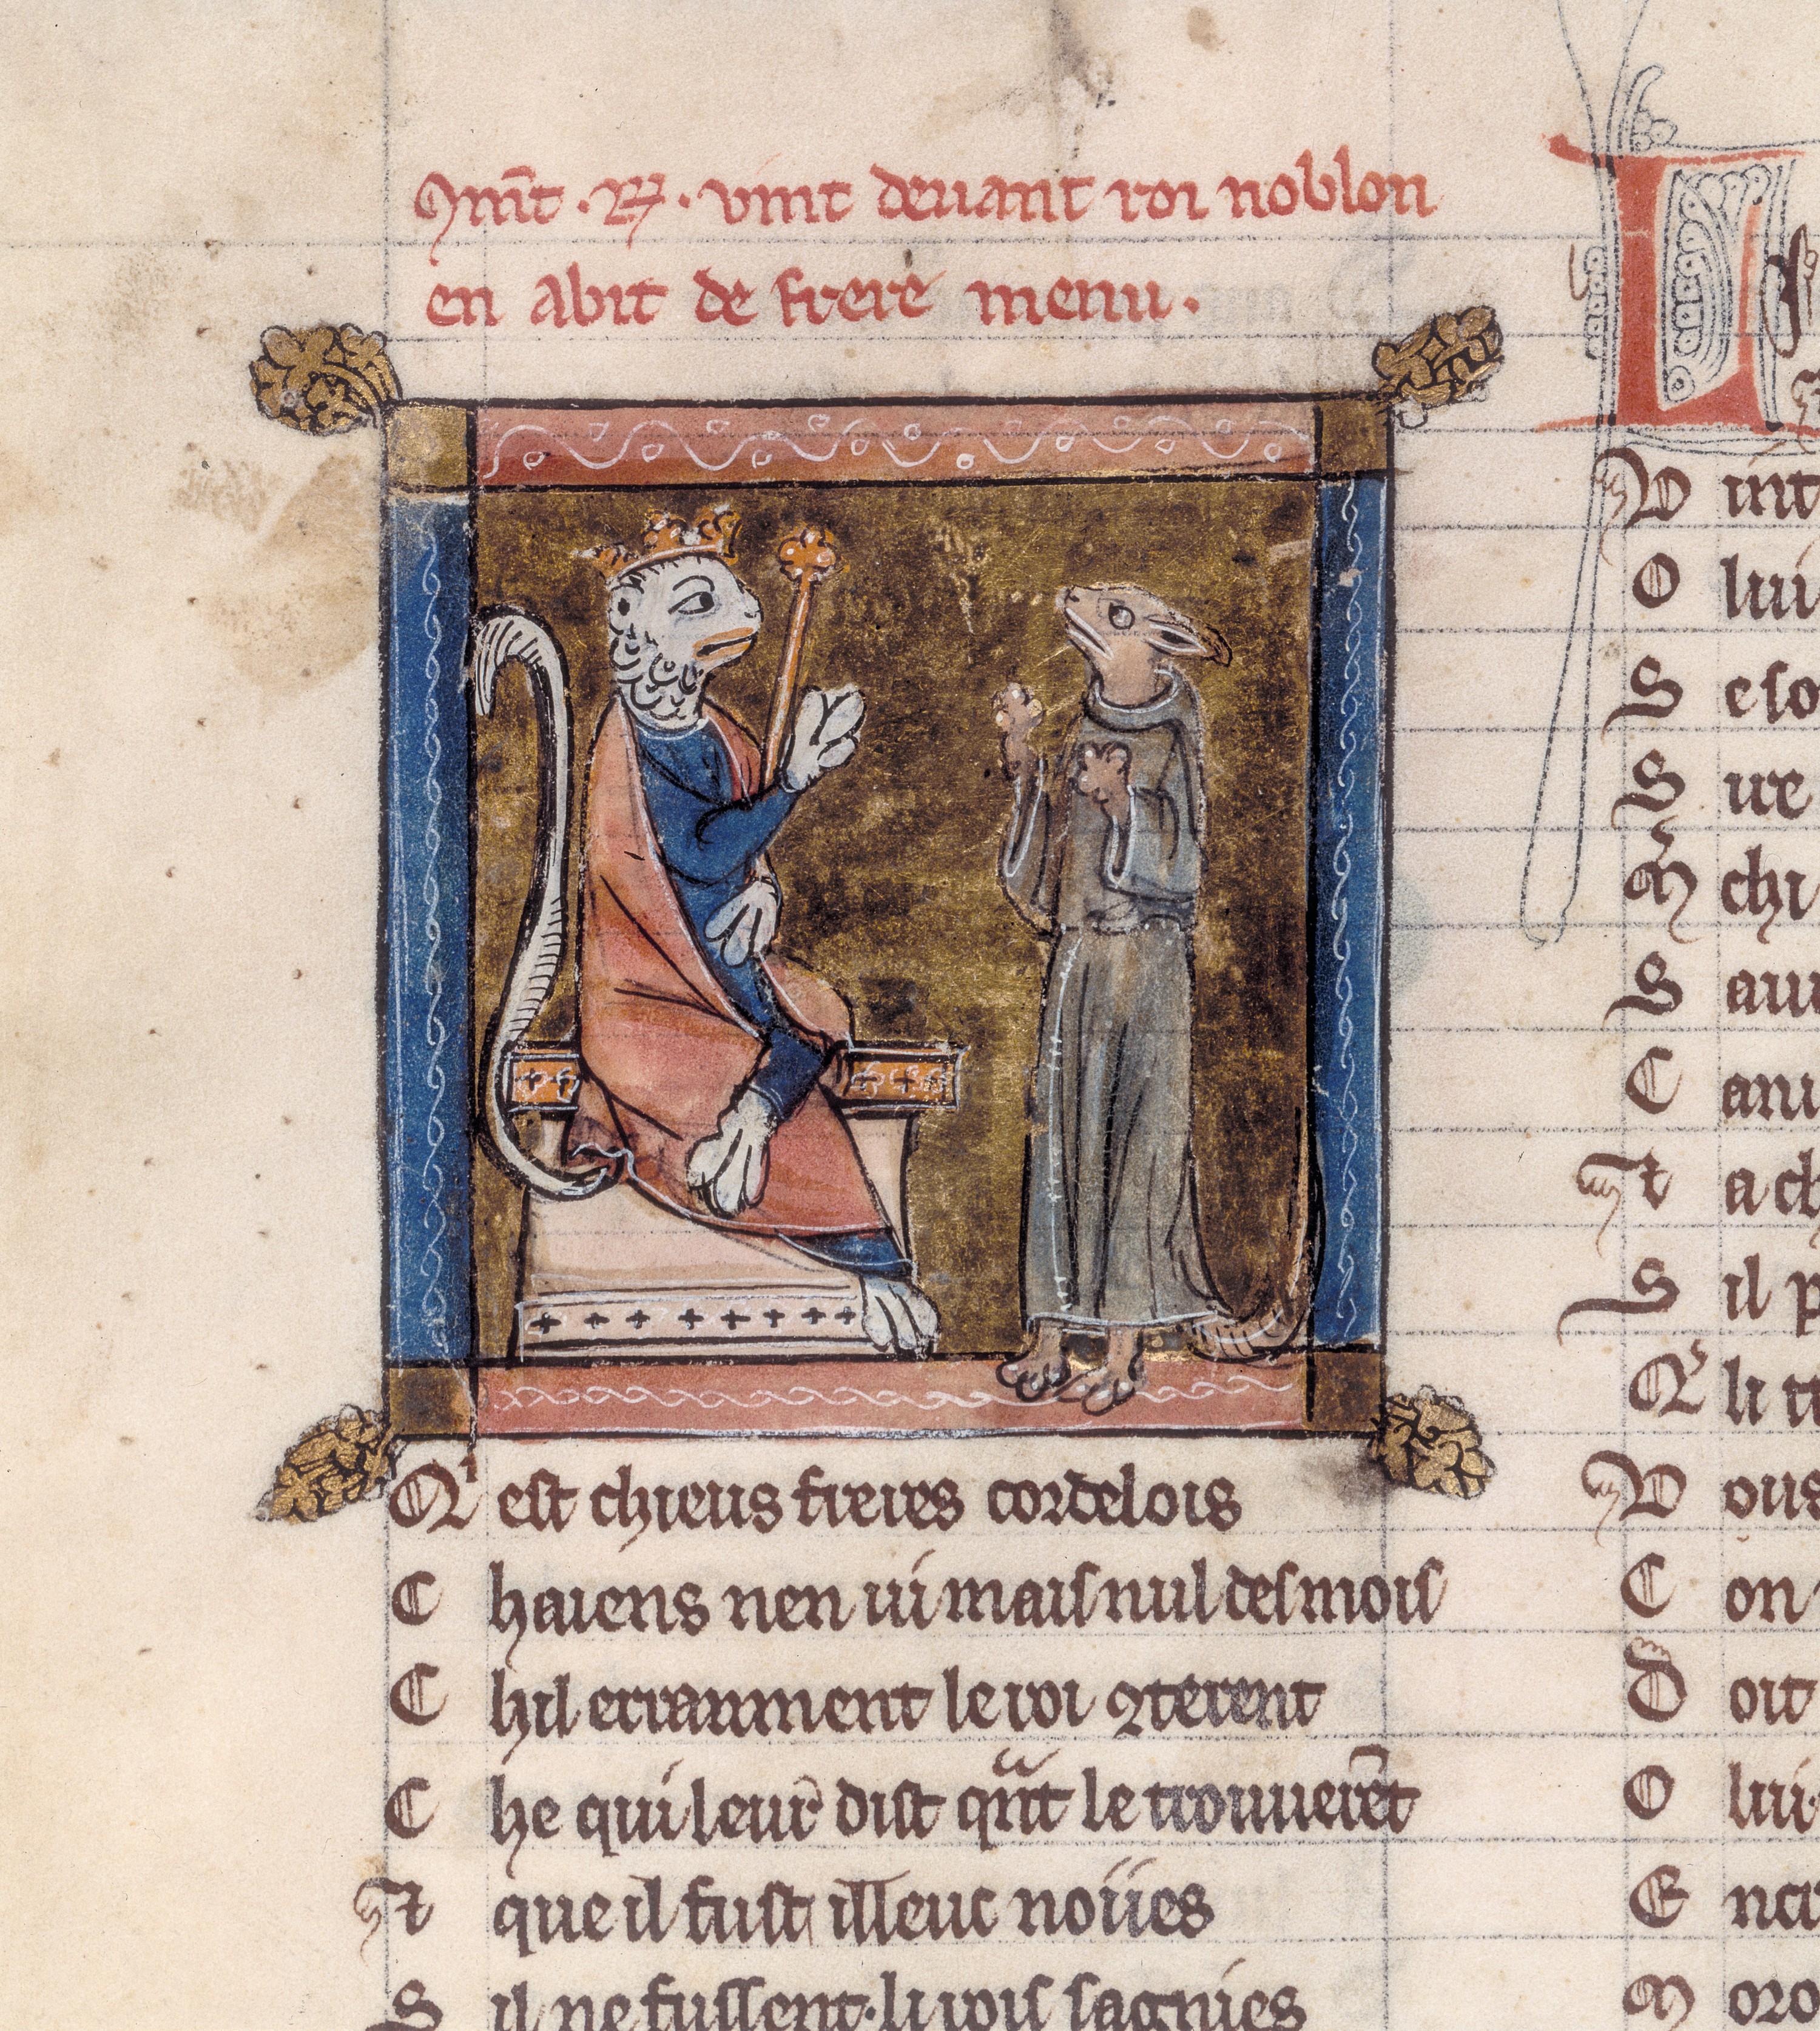 Ꝯmt̄ .R. vint deuant roi noblon
en abit de frere menu.
Qi est chieus freres cordelois
C haiens nen ui mais nul des mois
C hil erranment le roi ꝯterent
C he qui leur dist qͣnt le trouuerēt
 que il fust illeuc noiies
S il ne fussent. li rois sagnies
L
V int
O lui
S e so
S ire
chi
S aui
C ani
T a ch
S il p
Q li
V ous
C on
D oit
O lui
E nc
M oro